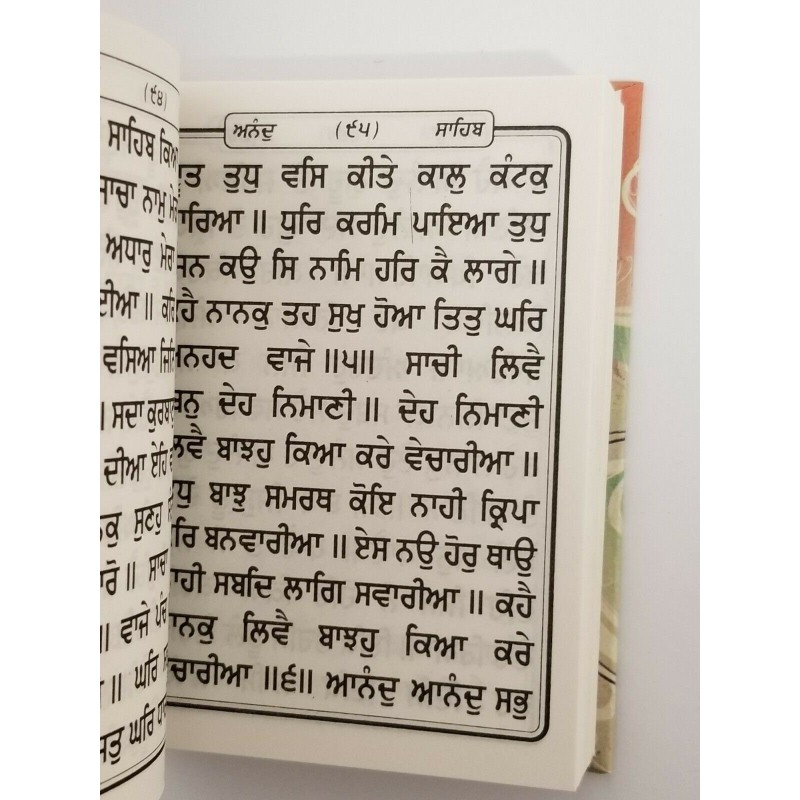 (੯੪)
ਸਾਹਿਬ
ਸਾਚਾ ਨਾਮੁ
ਅਧਾਰੁ ਮੇਰਾ
ਵਸਿਆ
। ਸਦਾ
ਦੀਆ ਏਹਿ
ਸੁਣਹੁ
॥ ਸਾਚਾ
॥ ਵਾਜੇ ਪੰਚ
॥ ਘਰਿ
ਘਰਿ
ਅਨੰਦੁ (੯੫) ਸਾਹਿਬ
ਤੁਧੁ ਵਸਿ ਕੀਤੇ ਕਾਲੁ ਕੰਟਕੁ
ਮਾਰਿਆ ॥ ਧੁਰਿ ਕਰਮਿ ਪਾਇਆ ਤੁਧੁ
ਜਿਨ ਕਉ ਸਿ ਨਾਮਿ ਹਰਿ ਕੈ ਲਾਗੇ ॥
ਕਹੈ ਨਾਨਕੁ ਤਹ ਸੁਖੁ ਹੋਆ ਤਿਤੁ ਘਰਿ
ਅਨਹਦ ਵਾਜੇ ॥੫॥ ਸਾਚੀ ਲਿਵੈ
ਬਿਨੁ ਦੇਹ ਨਿਮਾਣੀ ॥ ਦੇਹ ਨਿਮਾਣੀ
ਲਿਵੈ ਬਾਝਹੁ ਕਿਆ ਕਰੇ ਵੇਚਾਰੀਆ ॥
ਤੁਧੁ ਬਾਝੁ ਸਮਰਥ ਕੋਇ ਨਾਹੀ ਕ੍ਰਿਪਾ
ਕਰਿ ਬਨਵਾਰੀਆ ॥ ਏਸ ਨਉ ਹੋਰੁ ਥਾਉ
ਨਾਹੀ ਸਬਦਿ ਲਾਗਿ ਸਵਾਰੀਆ ॥ ਕਹੈ
ਨਾਨਕੁ ਲਿਵੈ ਬਾਝਹੁ ਕਿਆ ਕਰੇ
ਵੇਚਾਰੀਆ ॥੬॥ ਆਨੰਦੁ ਆਨੰਦੁ ਸਭੁ